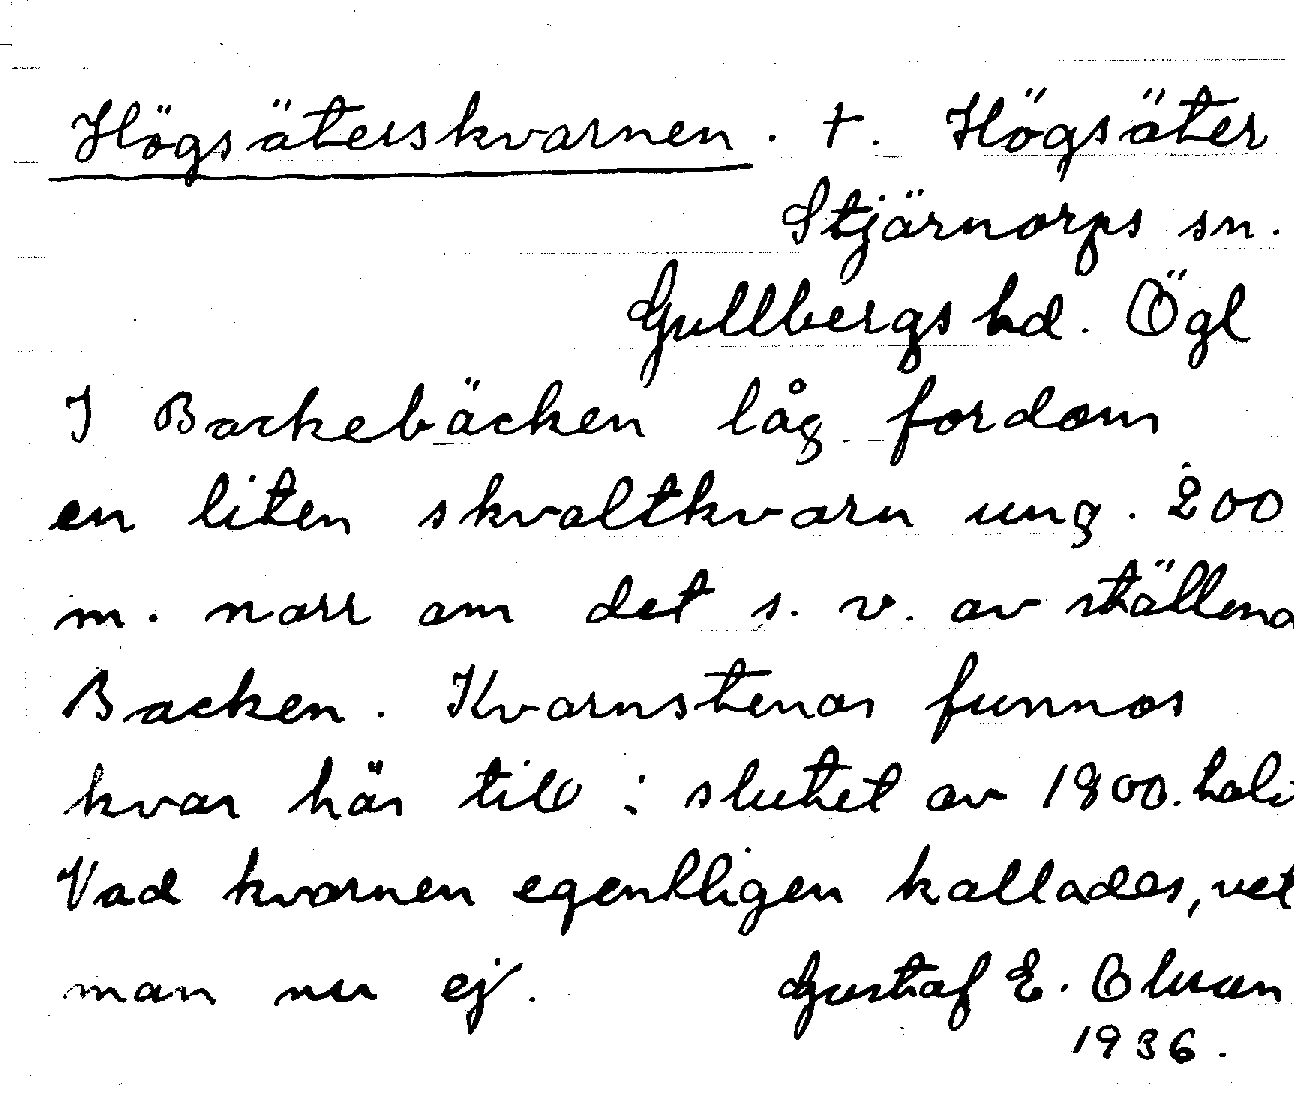 Högsäterskvarnen. +. Högsäter
Stjärnorps sn.
Gullbergs hd. Ögl
I Backebäcken låg fordom
en liten skvaltkvarn ung. 200
m. norr om det s. v. av ställena
Backen. Kvarnstenar funnos
kvar här till i slutet av 1800.tal
Vad kvarnen egentligen kallades, vet
man nu ej. Gustaf E. Olsson
1936.